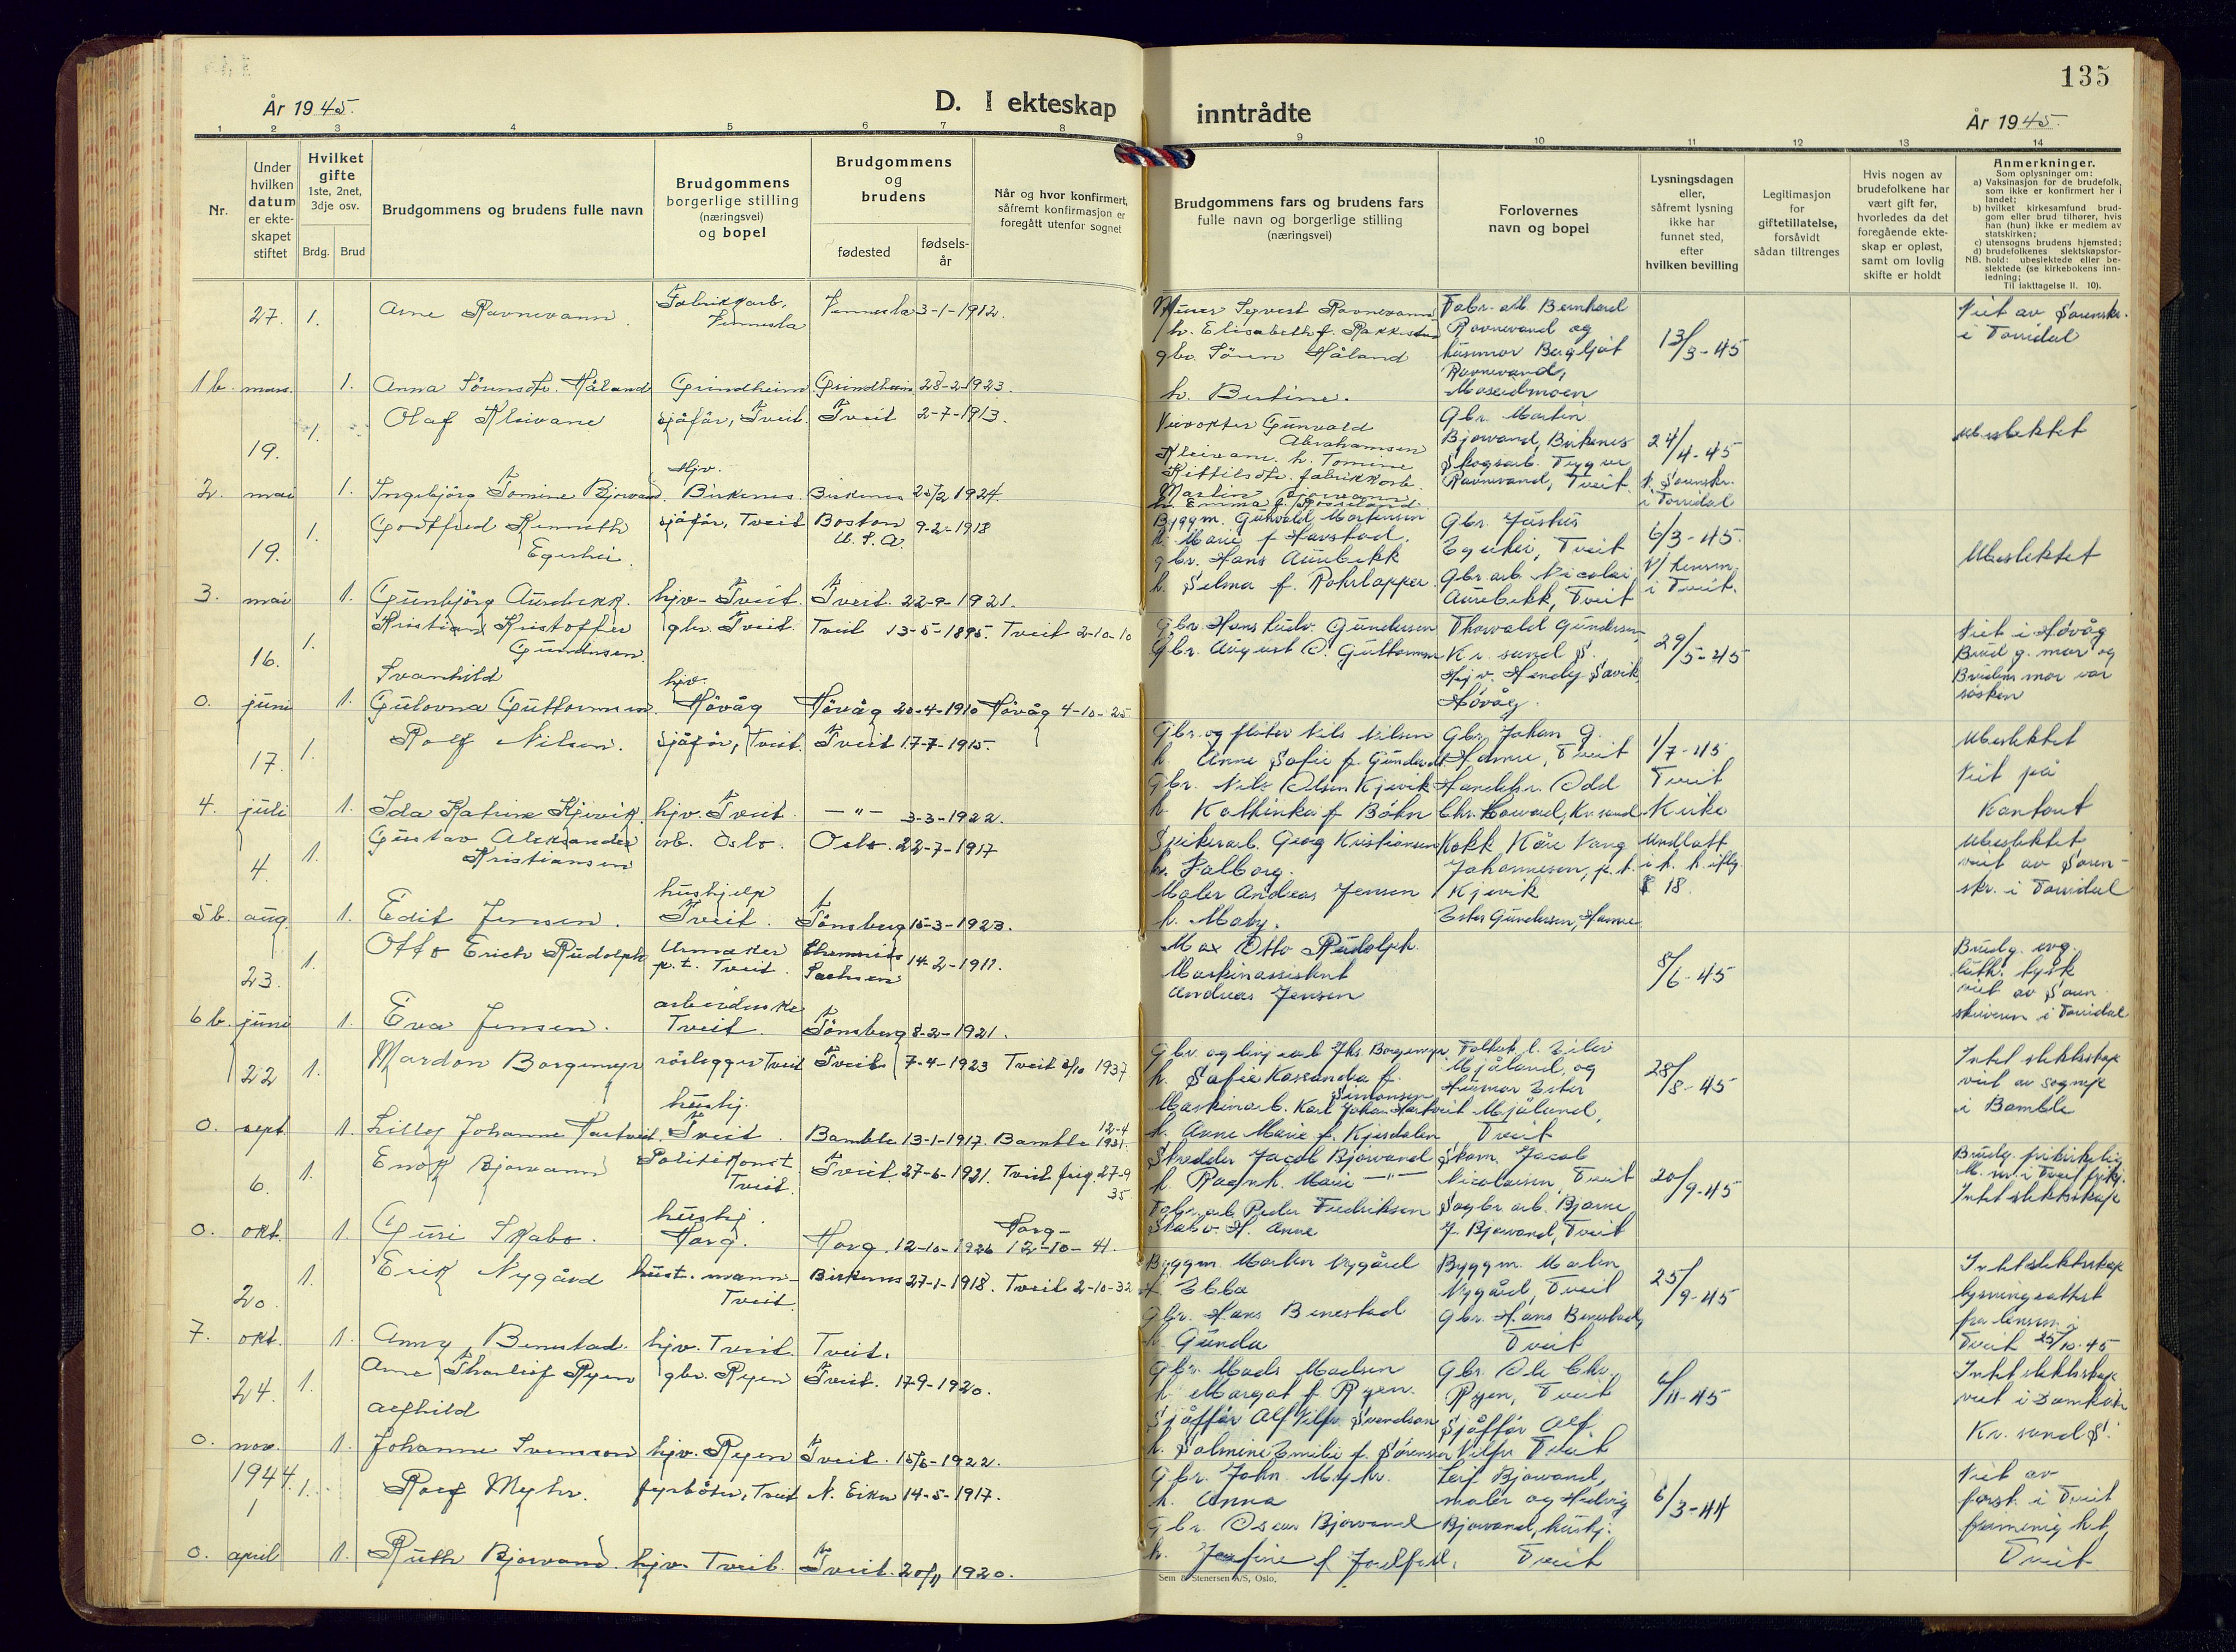 135
År 1945.
D. I ekteskap
inntrådte
År 1945.
1 2 3 4 5 6 7 8 9 10 11 12 13 14
Nr.
Under
hvilken
datum
er ekte-
skapet
stiftet
Hvilket
gifte
1ste, 2net,
3dje osv.
Brdg. Brud
Brudgommens og brudens fulle navn
Brudgommens
borgerlige stilling
(næringsvei)
og bopel
Brudgommens
og
brudens
fødested
fødsels-
år
Når og hvor konfirmert,
såfremt konfirmasjon er
foregått utenfor sognet
Brudgommens fars og brudens fars
fulle navn og borgerlige stilling
(næringsvei)
Forlovernes
navn og bopel
Lysningsdagen
eller,
såfremt lysning
ikke har
funnet sted,
efter
hvilken bevilling
Legitimasjon
for
giftetillatelse,
forsåvidt
sådan tiltrenges
Hvis nogen av
brudefolkene har
vært gift før,
hvorledes da det
foregående ekte-
skap er opløst,
samt om lovlig
skifte er holdt
Anmerkninger.
Som oplysninger om:
a) Vaksinasjon for de brudefolk,
som ikke er konfirmert her i
landet;
b) hvilket kirkesamfund brud-
gom eller brud tilhører, hvis
han (hun) ikke er medlem av
statskirken;
c) utensogns brudens hjemsted;
d) brudefolkenes slektskapsfor-
hold: ubeslektede eller be-
slektede (se kirkebokens inn-
ledning;
NB.
Til iakttagelse II. 10).
27. 1. Arne Ravnevann Fabrikkarb. Vennesla Vennesla 3-1-1912.
h. Elisabeth f.
gbr. Sören Håland
Fabr. arb. Bernhard
Ravnevand og
husmor Bergljot
Ravnevand,
Moseidmoen
13/3-45
Viet av Sorenskr.
i Torridal
1b. mars. 1. Anna Sörensdtr. Håland Grindheim Grindheim 28-2-1923.
h. Bertine.
19. 1. Olaf Kleivane sjåfør, Tveit. Tveit 2-7-1913.
Gunvald
Abrahamsen
Kleivane. h. Tomine
Gbr. Martin
Bjorvand, Birkenes
Skogsarb. Trygve
Ravnevand, Tveit.
24/4-45
Sorenskr.
i Torridal
Ubeslektet
2. mai 1. Ingebjörg Tomine Bjorvand. hjv. Birkenes. Birkenes 25/2 1924.
h. Emma f.
19. 1. Gottfred Kenneth
Egeshei.
sjåfør, Tveit Boston
U. S. A. 9-2-1918
Byggm. Gunvald Mortensen
h. Marie f. Havstad.
gbr. Hans Aurebekk
h. Selma f.
Gbr. Justus
Egeshei, Tveit
Gbr arb. Nicolai
Aurebekk, Tveit
6/3-45.
v/ lensm.
i Tveit.
Ubeslektet
3. mai 1. Gunbjörg Aurebekk. hjv. Tveit. Tveit. 22-9-1921.
16. 1. Kristian Kristoffer
Gundersen.
gbr. Tveit. Tveit 13-5-1895. Tveit 2-10-10
Gbr. Hans Ludv. Gundersen
Gbr. August O. Guttormsen
Thorvald Gundersen,
Kr. sand S.
Hjv. Hendy Savik,
Hövåg.
29/5-45
Viet i Hövåg
Brudg. mor og
Brudens mor var
søsken
0. juni 1. Svanhild
Gulovna Guttormsen. hjv. Hövåg Hövåg 20-4-1910 Hövåg 4-10-25
17. 1. Rolf Nilsen. sjåfør, Tveit. Tveit 17-7-1915.
Gbr. og fløter Nils Nilsen
h. Anne Sofie f.
Gbr. Nils Olsen Kjevik
h. Kathinka f. Böhn
Gbr. Johan G.
Hamre, Tveit
Handelsr. Odd
Chr. Hovad, Kr. sand
1/7-45
Tveit
Kirke
Ubeslektet
Viet på
Kontoret
4. juli 1. Ida Katrine Kjevik. hjv. Tveit. — " — 3-3-1922.
4. 1. Gustav Aleksander
Kristiansen
arb. Oslo. Oslo. 22-7-1917
Georg Kristiansen
h. Valborg.
Maler Andreas Jensen
h. Maby.
Kokk Kåre Vang
Johannesen, p. t.
Kjevik
Ester Gundersen, Hamre
Undlatt
§ 18.
Ubeslektet
viet av Soren-
skr. i Torridal
5b. aug. 1. Edit Jensen. hushjelp
Tveit. Tönsberg 15-3-1923.
23. 1. Otto Erich Rudolph Urmaker
p.t. Tveit. Chemnitz
Sachsen 14-2-1911.
Max Otto Rudolph.
Maskinassistent
Andreas Jensen
8/6-45
Brudg. evg.
luth. tysk
viet av Soren
skriveren i Torridal
6b. juni 1. Eva Jensen. arbeiderske
Tveit. Tönsberg 8-2-1921.
22 1. Mardon Borgemyr rörlegger Tveit Tveit. 7-4-1923 Tveit 1937
h. Sofie Kassandra f.
Simonsen
Maskinarb. Karl Johan Hartveit
h. Anne Marie f. Kjersdalen
Mjåland, og
Husmor Ester
Mjåland,
Tveit
28/8-45
Intet slektskap
viet av sognepr
i Bamble
0. sept 1. Lilly Johanne Hartveit. hushj.
Tveit. Bamble 13-1-1917. Bamble 12-4
1931.
6. 1. Enok Bjorvann Politikonst.
Tveit. Tveit. 27-6-1921. Tveit frig. 27-9
35
Skredder Jacob Bjorvand
h. Ragnh. Marie — " —
Fabr. arb. Peder Fredriksen
Skabo. H. Anne
Skom. Jacob
Nicolaisen, Tveit
Sagbr. arb. Bjarne
J. Bjorvand, Tveit
20/9-45
Brudg. frikirkelig
M. nr. i Tveit frikj.
Intet slektskap
0. okt. 1. Guri Skabo. hushj.
Horg. Horg. 12-10-1926 Horg
12-10-41.
20. 1. Erik Nygård hust. mann
Tveit. Birkenes 27-1-1918. Tveit 2-10-32
Byggm. Morten Nygård
h. Ebba
Gbr. Hans Benestad
h. Gunda
Byggm. Morten
Nygård, Tveit
Gbr. Hans Benestad,
Tveit
25/9-45
Intet slektskap
lysningsattest
fra lensm. i
Tveit 25/10-45
7. okt. 1. Anny Benestad. hjv. Tveit. Tveit.
24. 1. Arne Thorleif Ryen gbr. Ryen Tveit. 17-9-1920.
Gbr. Mads Madsen
h. Margot f. Ryen.
Sjåffør Alf Vilfr. Svendsen
h. Salmine Emilie f. Sörensen
Gbr. Ole Chr.
Ryen, Tveit
Sjåffør Alf
Vilfr Tveit
6/11-45
Intet slektskap
viet i Domkirk
Kr. sand S.
0. nov. 1. Alfhild
Johanne Svensson hjv. Ryen Tveit. 15/6-1922.
1944.
1 1. Rolf Myhr. fyrböter, Tveit N. Eiker 14-5-1917.
Gbr. John. Myhr.
h. Anna
Gbr. Oscar Bjorvand
h. Josefine f.
Leif Bjorvand,
maler og Hedvig
Bjorvand, hushj.
Tveit
6/3-44
Viet av
forst. i Tveit
frimenighet,
Tveit
0. april 1. Ruth Bjorvand. hjv. Tveit. Tveit. 20/11 1920.
Sem & Stenersen A/S, Oslo.